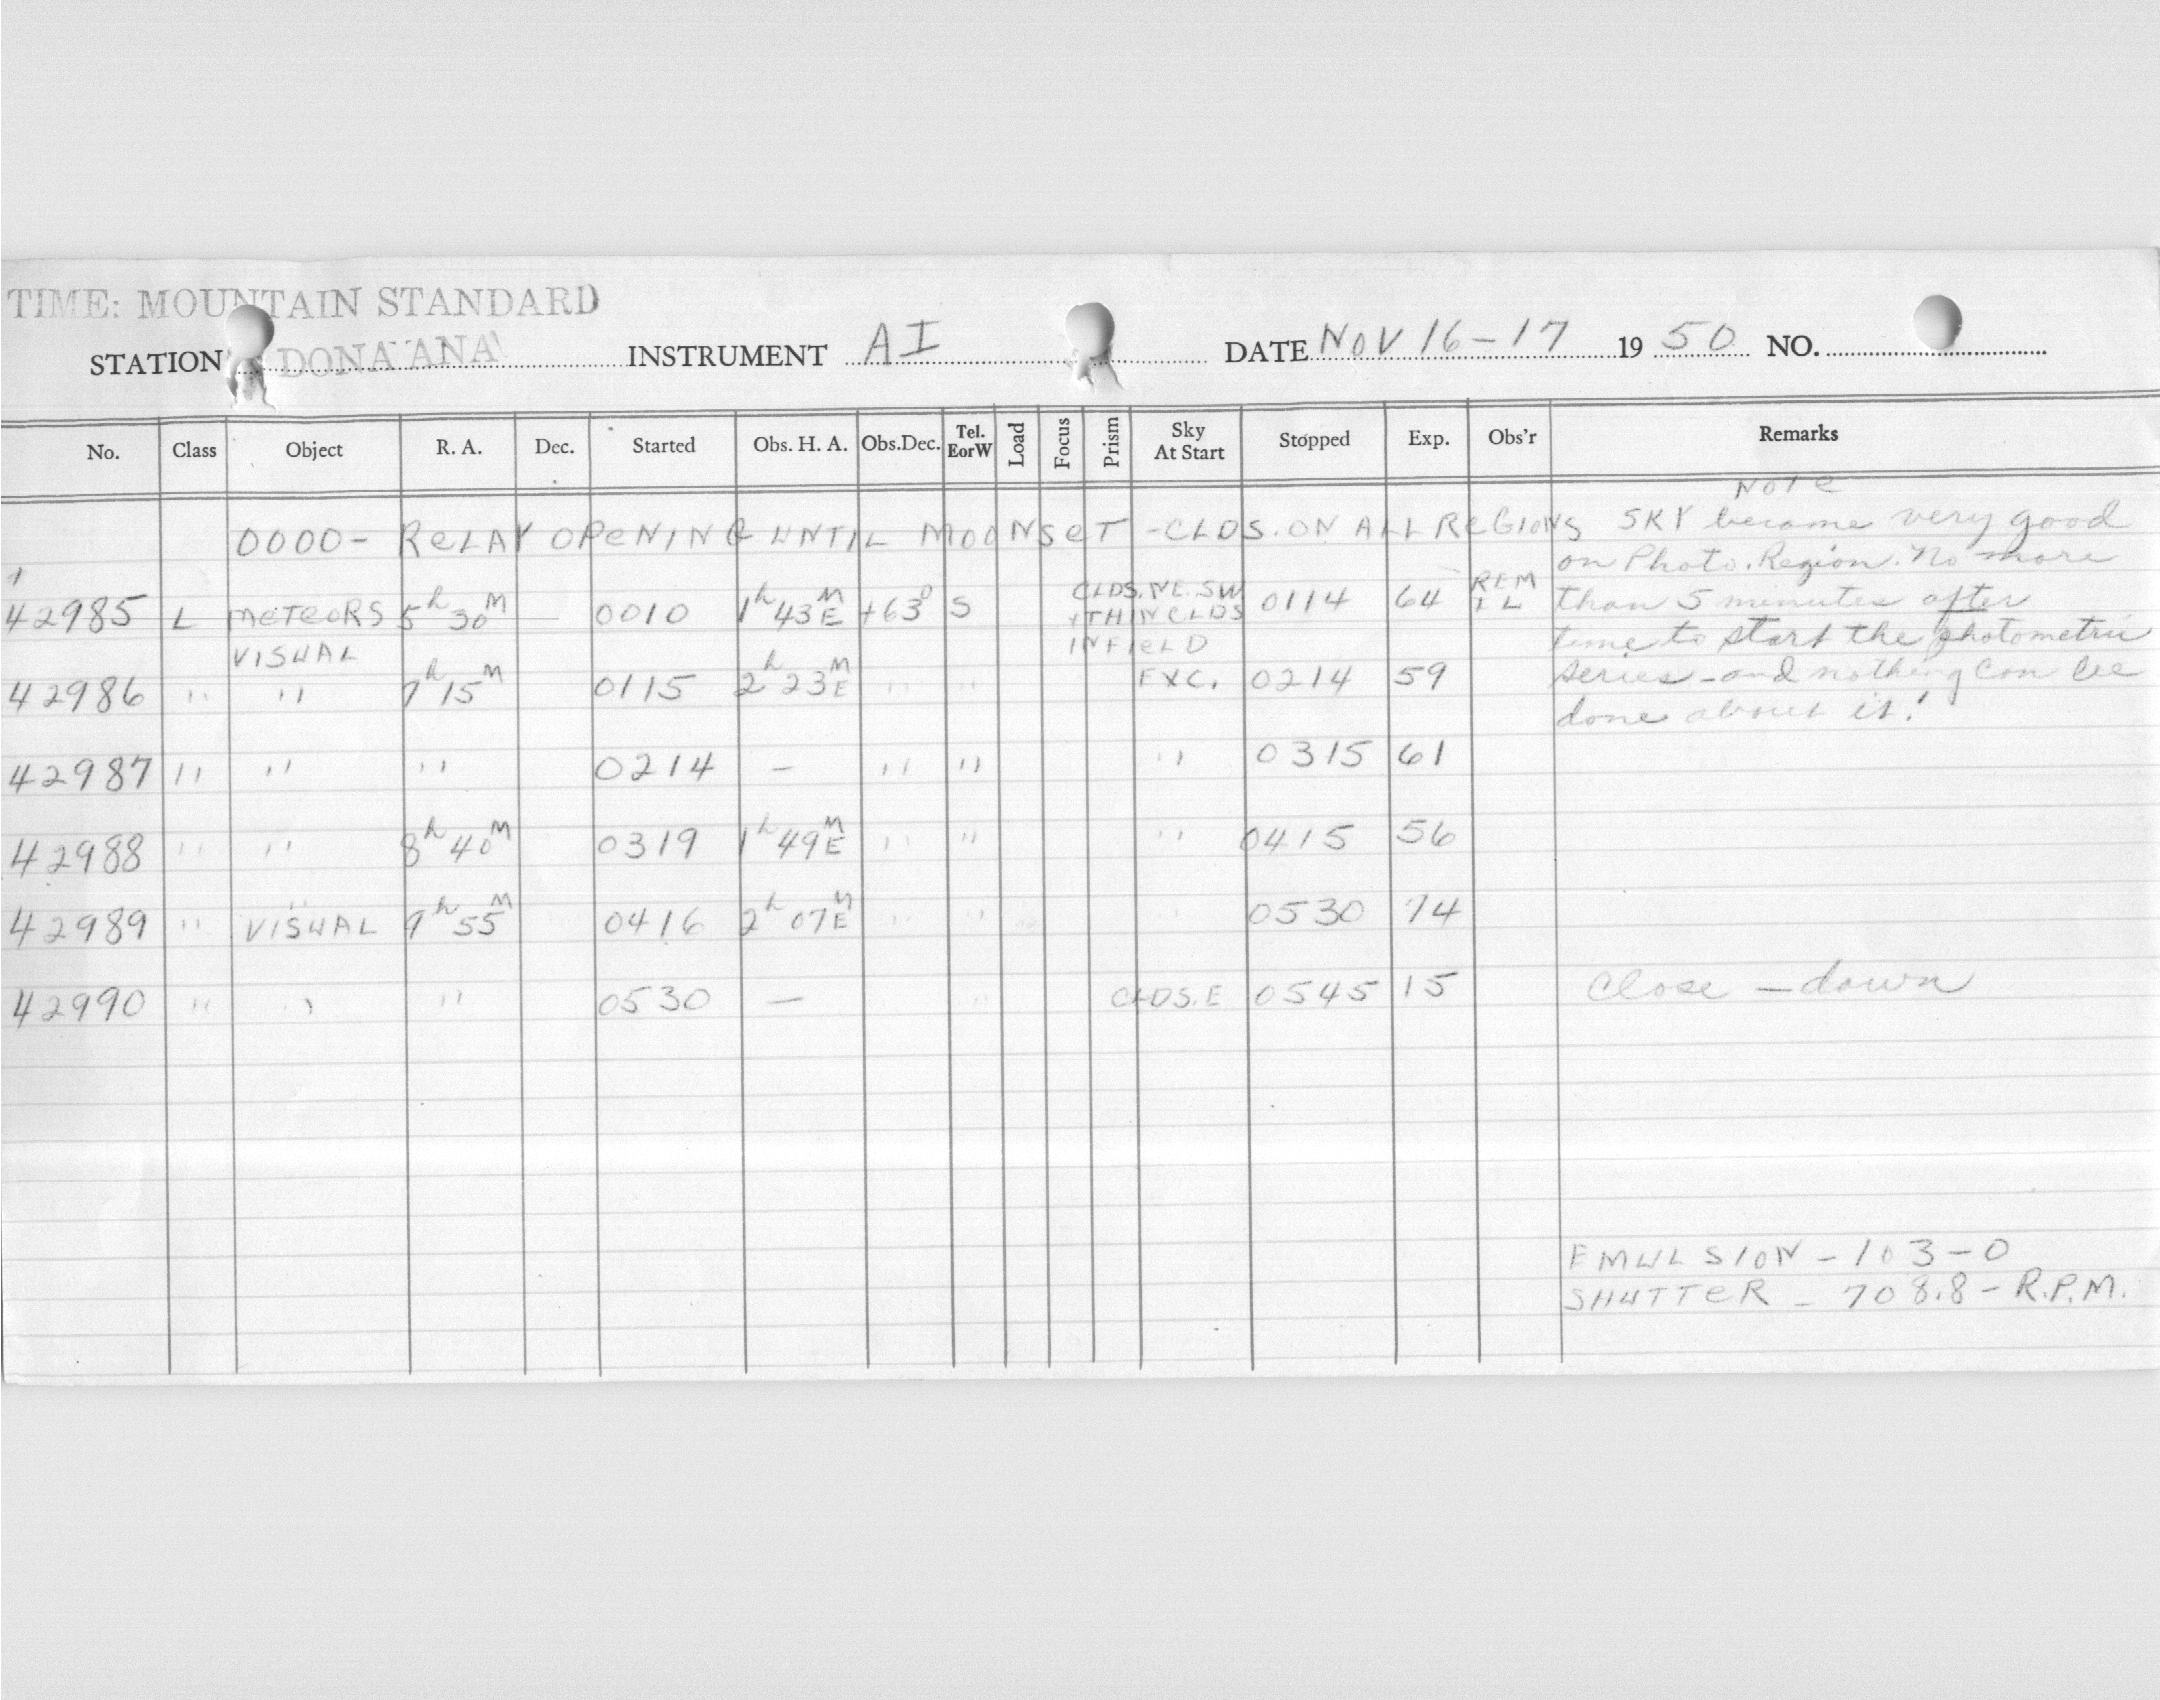 TIME: MOUNTAIN STANDARD
STATION DONA ANA INSTRUMENT AI DATE NOV 16-17 1950 NO.
No. Class Object R. A. Dec. Started Obs. H. A. Obs.Dec. Tel. EorW Load Focus Prism Sky At Start Stopped Exp. Obs'r Remarks
Note
0000- RELAY OPENING UNTIL MOONSET -CLDS. ON ALL REGIONS SKY became very good
on Photo. Region. No more
42985 L METEORS 5h 30M — 0010 1h 43M E +63° S CLDS. NE. SW + THIN CLDS IN FIELD 0114 64 REM IL than 5 minutes after
VISUAL time to start the photometric
42986 " " 7h 15M 0115 2h 23M E " " EXC. 0214 59 series - and nothing can be
done about it!
42987 " " " 0214 — " " " 0315 61
42988 " " 8h 40M 0319 1h 49M E " " " 0415 56
42989 " " VISUAL 9h 55M 0416 2h 07M E " " 0530 74
42990 " " " 0530 — " CLDS. E 0545 15 Close - down
EMULSION - 103-O
SHUTTER - 708.8 - R.P.M.